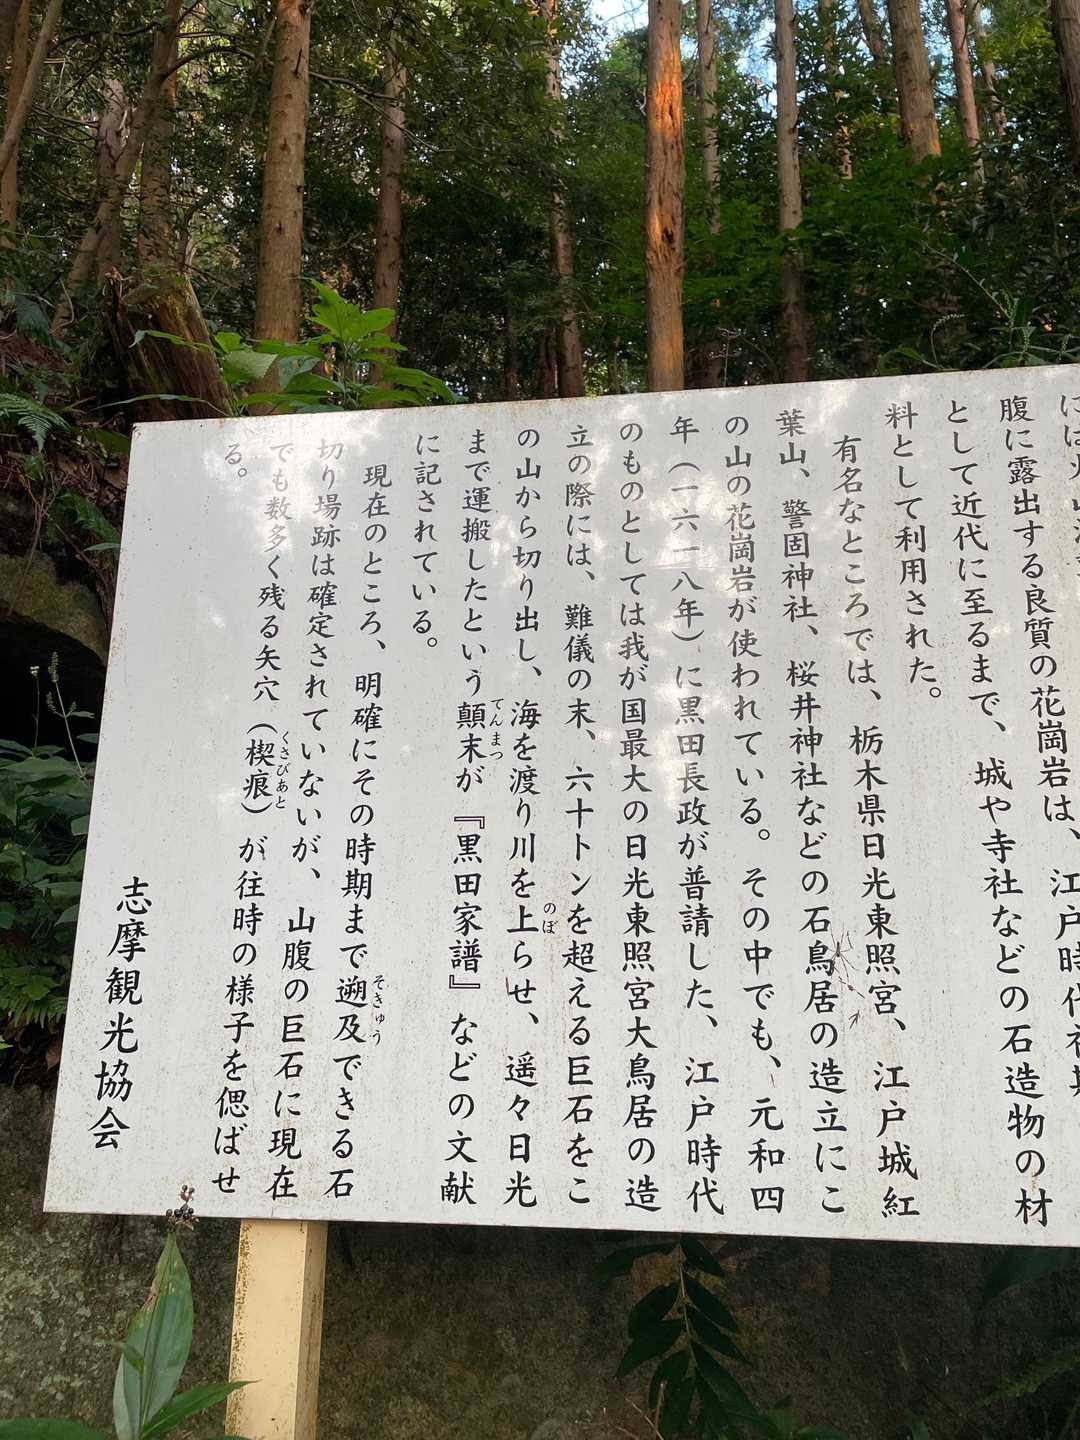 腹に露出する良質の花崗岩は、江戸時代初期
として近代に至るまで、城や寺社などの石造物の材
料として利用された。
有名なところでは、栃木県日光東照宮、江戸城紅
葉山、警固神社、桜井神社などの石鳥居の造立にこ
の山の花崗岩が使われている。その中でも、元和四
年（一六一八年）に黒田長政が普請した、江戸時代
のものとしては我が国最大の日光東照宮大鳥居の造
立の際には、難儀の末、六十トンを超える巨石をこ
の山から切り出し、海を渡り川を上らせ、遥々日光
のぼ
まで運搬したという顛末が『黒田家譜』などの文献
てんまつ
に記されている。
現在のところ、明確にその時期まで遡及できる石
そきゅう
切り場跡は確定されていないが、山腹の巨石に現在
でも数多く残る矢穴（楔痕）が往時の様子を偲ばせ
くさびあと
る。
志摩観光協会